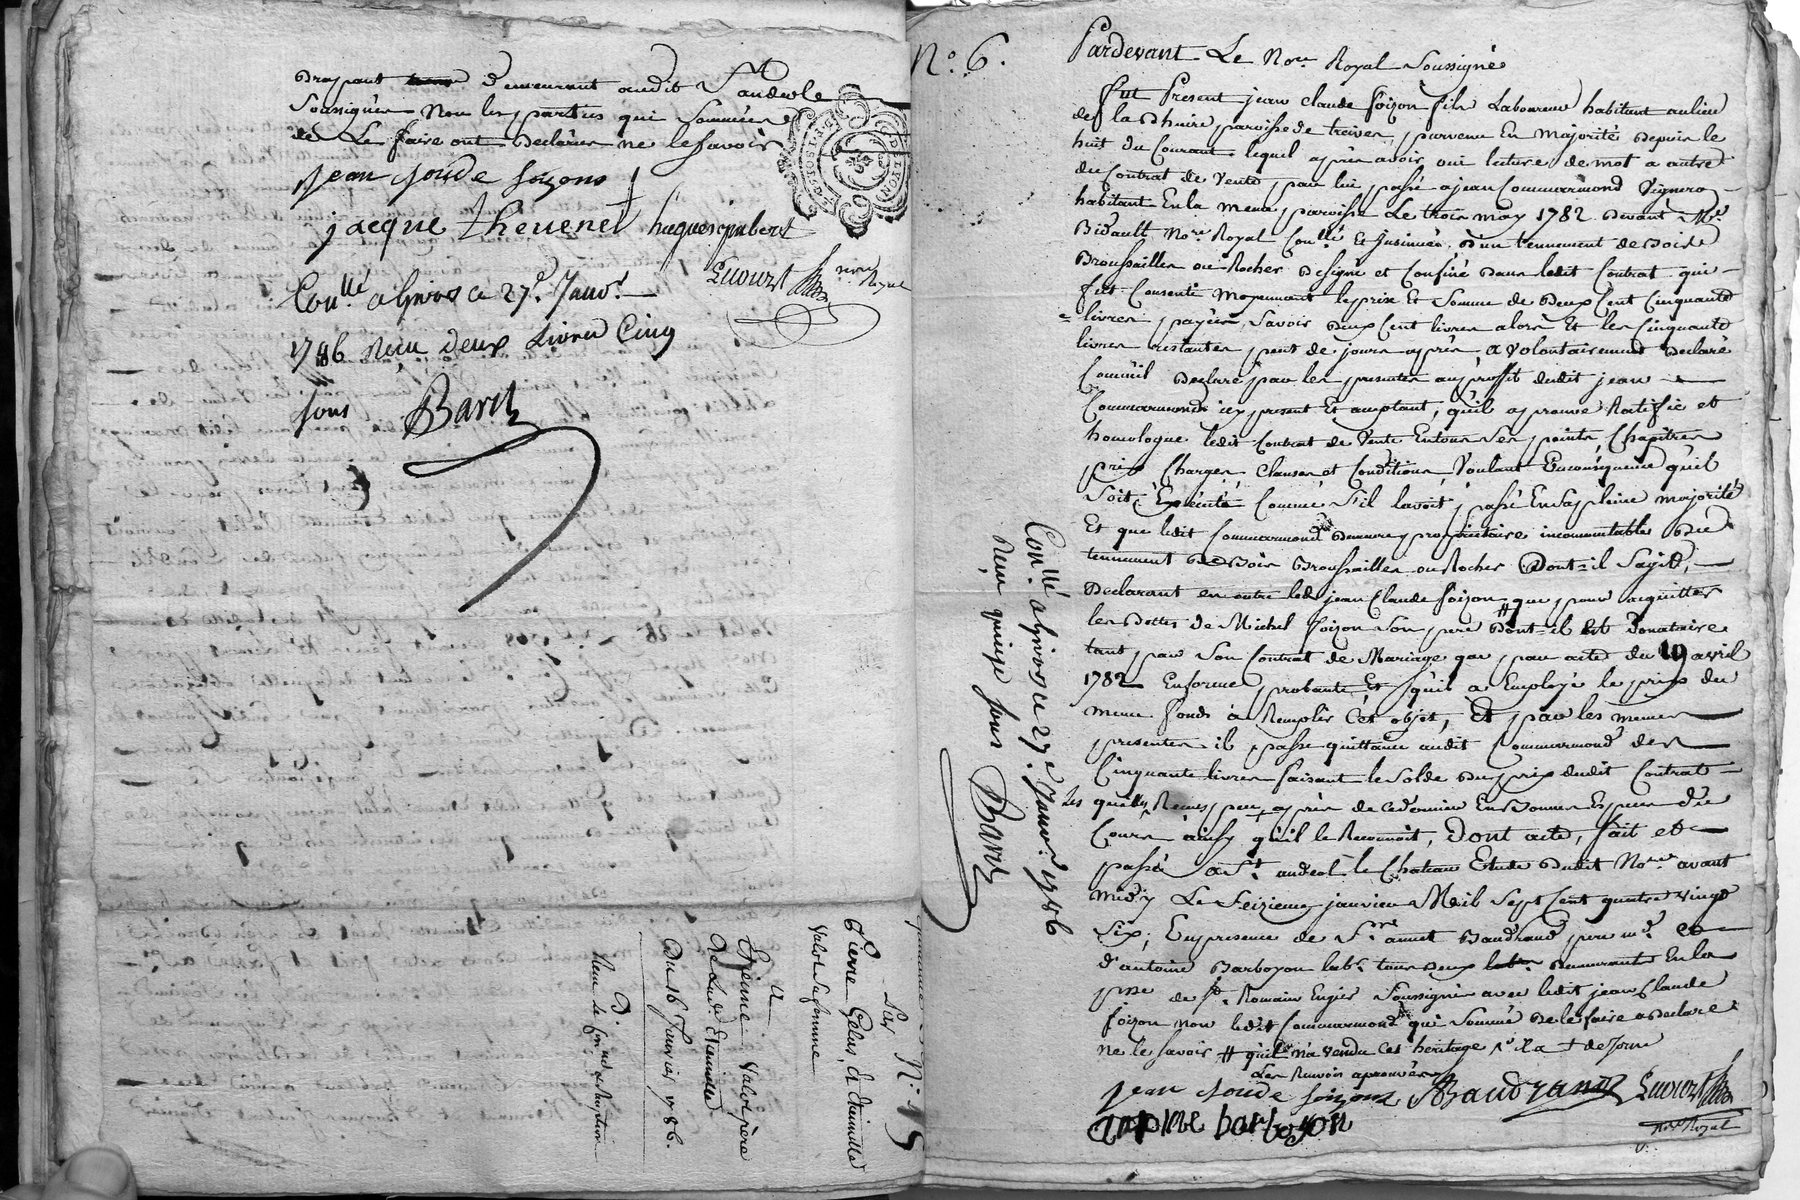 Drapant demeurant audit St andeole
Soussignés Non les parties qui Sommées
de Le faire ont Declarées ne lesavoir
jean soude soizons
jacque thevenet
Lecourt nore Royal
Conllé a Givors ce 27e. Janvr.
1786 Reçu deux Livres Cinq
sous Baret
Pierre Gelas et etiennette
Valot sa femme
a
Etienne Valot père
de Lade Etiennette
Du 16 Janvier 1786.
No. 6.
Pardevant Le Nore Royal Soussigné
fut Present jean claude foizon fils Laboureur habitant aulieu
de la Dhuire paroisse de treives, parvenu En majorité Depuis le
huit du Courant, lequel après avoir oui lecture de mot a autre
du Contrat de Vente, par lui passé a jean Commarmond Vigneron
habitant En la mena, paroisse Le trois may 1782 Devant Me
Bidault Nore Royal Conllé Et Insinué, D'un tennement de Bois
Broussailles ou Rocher Designé et Confiné Dans ledit Contrat qui
fut Consenti Moyennant le prix Et Somme de Deux Cent Cinquante
livres, payées, Savoir Deux Cent livres alors Et les Cinquante
livres restantes peut de jours après, a volontairement Declaré
Comme il Declare par les presentes au profit dudit jean
Commarmond icy present Et acceptant, qu'il aprouve Ratific et
homologue ledit Contrat de Vente En tous Ses points, Chapitres
prix Charges, Clauses et Conditions, Voulant En conséquence qu'il
Soit Exécuté Comme s'il lavoit passé En Sa pleine majorité
Et que ledit Commarmond Demeure proprietaire incommutable Du
tennement De Bois Broussailles ou Rocher Dont-il Sagit,
Declarant en outre led. jean Claude foizon que pour acquitter
les Dettes de Michel foizon Son pere # Dont-il est Donataire
tant par Son Contrat de Mariage que par acte du 19 avril
1782 En forme probante, Et qu'il a Employé le prix du
meme fonds à Remplir Cet objet, Et par les memes
presentes il passe quittance audit Commarmond des
Cinquante livres faisant le Solde Du prix dudit Contrat
les quelles Reçues peu après de ce dernier En Bonnes Especes du
Cours ainsy qu'il le Reconnoit, Dont acte, fait et
passé a St. andeol le Chateau Etude Dudit Nore avant
midy Le Seizieme janvier Mil Sept Cent quatre vingt
Six, En presence de Sr. annet Baudrand, pere md. et
d'antoine Barboyon labr. tous deux Demeurants En la
psse de St. Romain Engier Soussignés avec ledit jean Claude
foizon non ledit Commarmond qui Sommé De le faire a Declaré
ne le Savoir # qu'il n'a vendu cet heritage
Les Renvois aprouvés
jean soude soizons Baudrand Lecourt
antoine barboyon
Nore Royal
Conllé. a Givors ce 27e. Janvr. 1786
Reçu quinze sous Baret